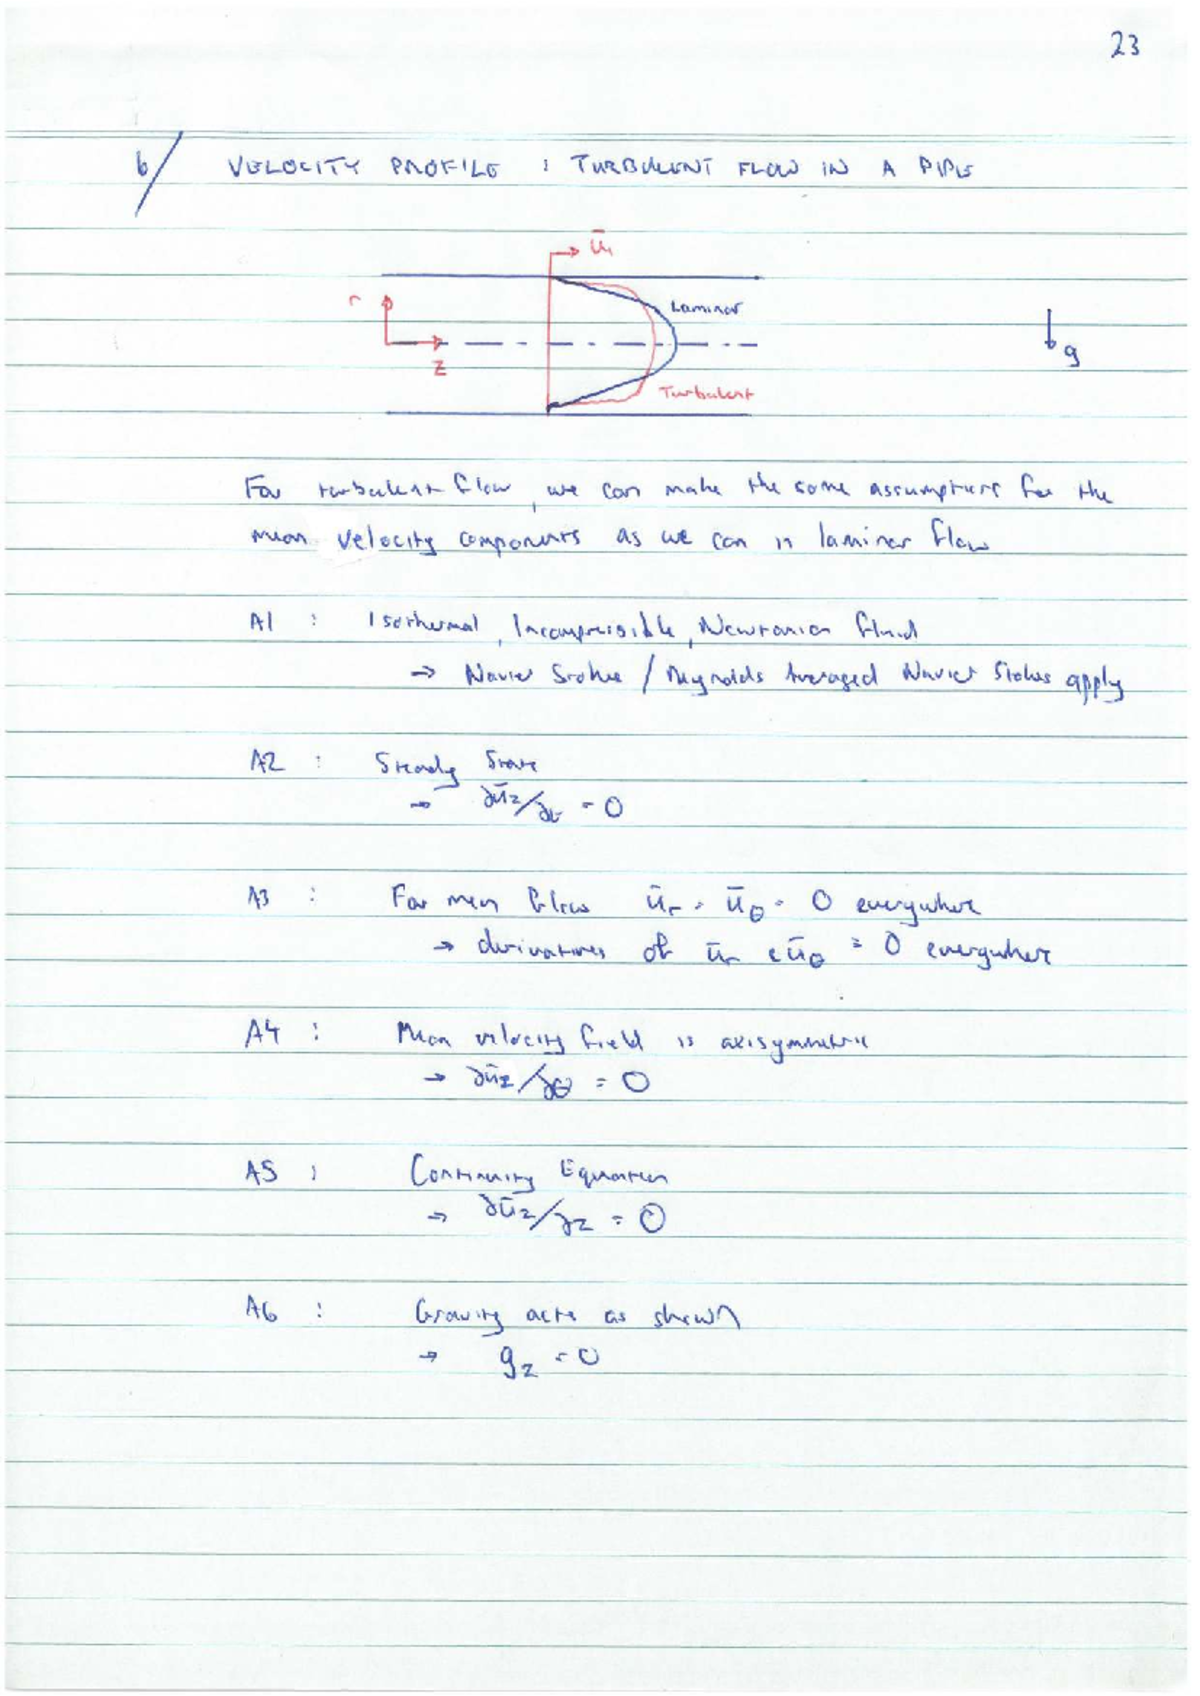 23
6/ VELOCITY PROFILE : TURBULENT FLOW IN A PIPE
ū
r
Laminar
z
g
Turbulent
For turbulent flow, we can make the same assumptions for the
mean velocity components as we can in laminar flow
A1 : Isothermal, Incompressible, Newtonian fluid
→ Navier Stokes / Reynolds Averaged Navier Stokes apply
A2 : Steady State
→ ∂ūz/∂t = 0
A3 : For mean flow ūr = ūθ = 0 everywhere
→ derivatives of ūr & ūθ = 0 everywhere
A4 : Mean velocity field is axisymmetric
→ ∂ūz/∂θ = 0
A5 : Continuity Equation
→ ∂ūz/∂z = 0
A6 : Gravity acts as shown
→ gz = 0